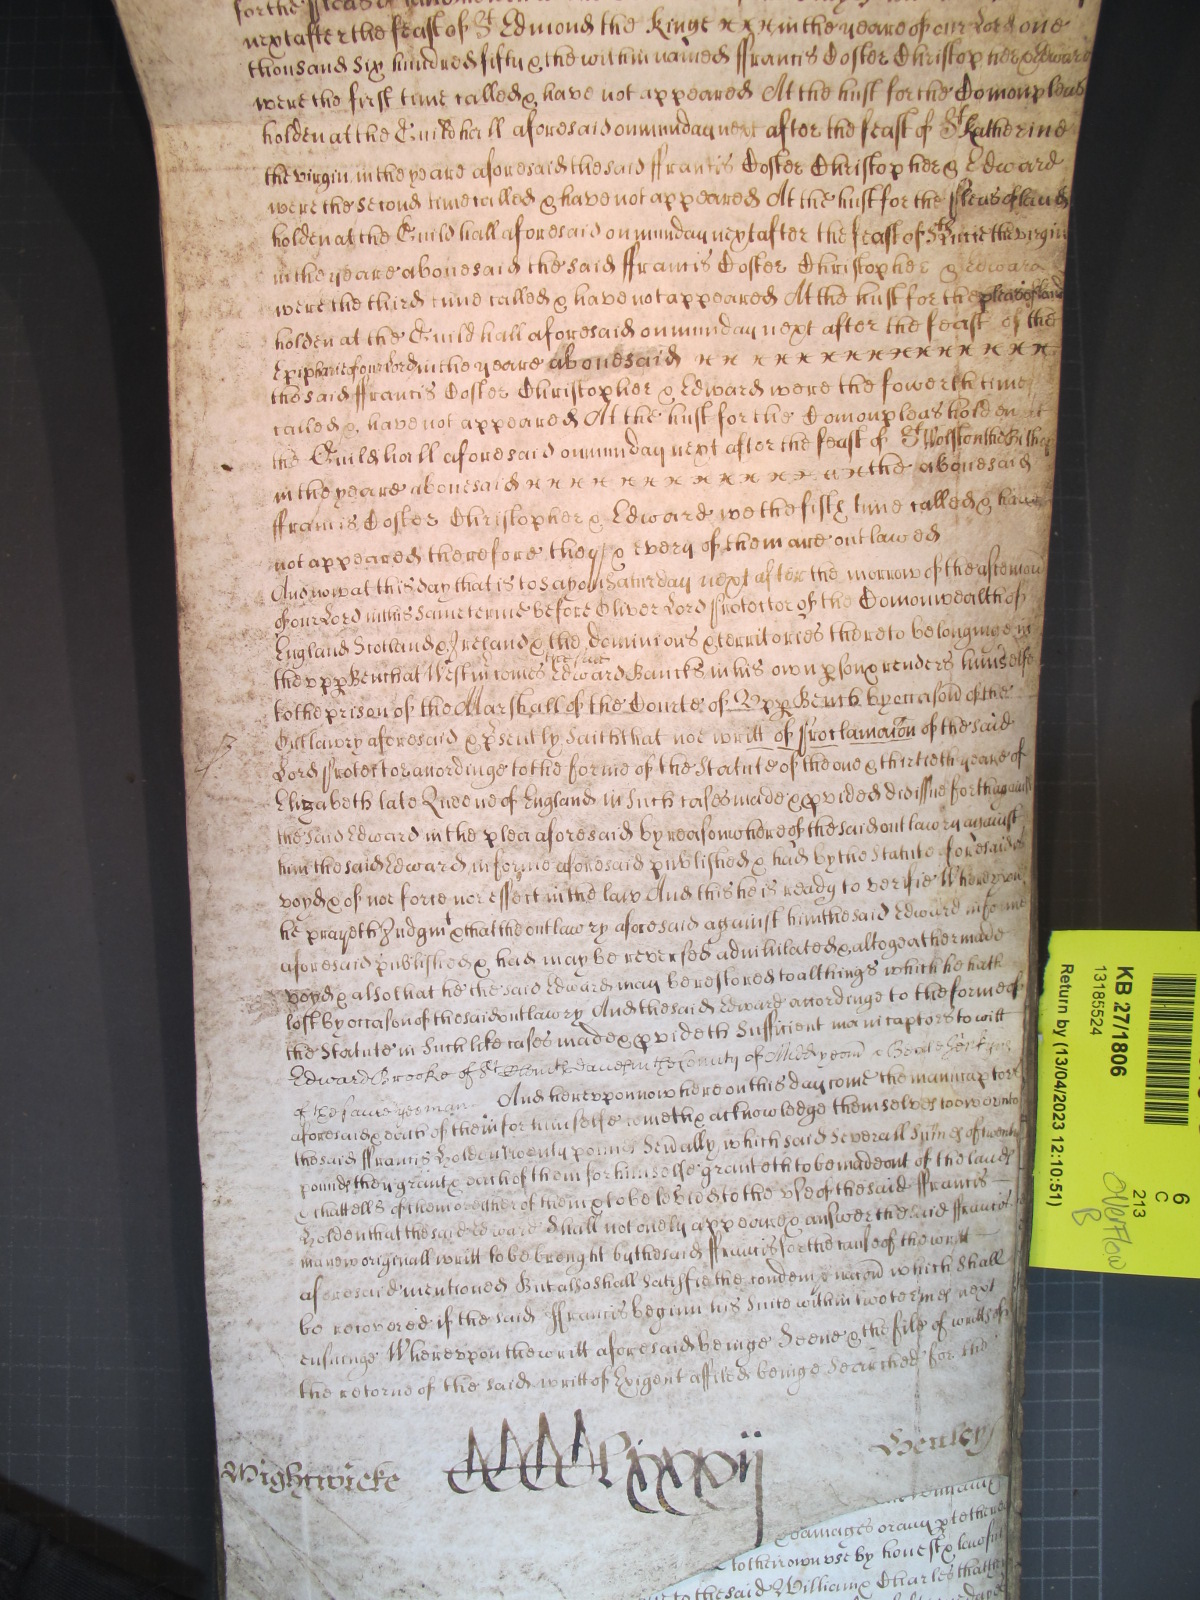 for the Pleas of
next after the feast of St Edmond the Kinge x x x in the yeare of our Lord one
thousand Six hundred fifty & the within named ffrancis Coster Christopher & Edward
were the first time called & have not appeared At the hust for the Comon pleas
holden at the Guildhall aforesaid on munday next after the feast of St Katherine
the virgin in the yeare aforesaid the said ffrancis Coster Christopher & Edward
were the second time called & have not appeared At the hust for the Pleas of land
holden at the Guildhall aforesaid on munday next after the feast of St Lucie the virgin
in the yeare abovesaid the said ffrancis Coster Christopher & Edward
were the third time called & have not appeared At the hust for the pleas of land
holden at the Guildhall aforesaid on munday next after the feast of the
Epiphanie of our Lord in the yeare abovesaid x x x x x x x x x x x x x
the said ffrancis Coster Christopher & Edward were the fowerth time
called & have not appeared At the hust for the Comon pleas holden at
the Guildhall aforesaid on munday next after the feast of St Wolston the Bishop
in the yeare abovesaid x x x x x x x x x x x x the abovesaid
ffrancis Coster Christopher & Edward we the fift time called & have
not appeared therefore they & every of them are outlawed
And now at this day that is to say on Saturday next after the morrow of the ascention
of our Lord in this same terme before Oliver Lord Protector of the Comonwealth of
England Scotland & Ireland & the dominions & territories thereto belonginge in
the upp Bench at Westm comes the said Edward Bancks in his own pson & renders himselfe
to the prison of the Marshall of the Courte of Upp Bench by occasion of the
Outlawry aforesaid & psently saith that noe writt of Proclamacon of the said
Lord Protector accordinge to the forme of the Statute of the one & thirtieth yeare of
Elizabeth late Queene of England in such cases made & pvided did issue forth against
the said Edward in the plea aforesaid by reason whereof the said outlawry against
him the said Edward in forme aforesaid published & had by the Statute aforesaid is
voyd & of noe force nor effect in the law And this he is ready to verifie Whereupon
he prayeth Judgmt & that the outlawry aforesaid against him the said Edward in forme
aforesaid published & had may be reversed adnihilated & altogeather made
voyd & also that he the said Edward may be restored to all things which he hath
lost by occasion of the said outlawry And the said Edward accordinge to the forme of
the Statute in such like cases made & pvideth sufficient manucaptors to witt
Edward Brooke of St Clement Danes in the County of Midd yeom &
of the same yeoman And hereupon now here on this day come the manucaptors
aforesaid & each of them for himselfe cometh & acknowledge themselves to owe unto
the said ffrancis Holden twenty pounds sevally which said severall summes of twenty
pounds they grant & each of them for himselfe granteth to be made out of the lands
& chattells of them or either of them & to be levied to the use of the said ffrancis
Holden that the said Edward shall not onely appeare & answer the said ffrancis
in a new originall writt to be brought by the said ffrancis for the cause of the writt
aforesaid mentioned But also shall satisfie the condempnacon which shall
be recovered if the said ffrancis beginn his suite within two termes next
ensuinge Whereupon the writt aforesaid beinge seene & the file of writts of
the retorne of the said writt of Exigent affiled beinge searched for the
Wightwicke MMMMlxxxij Henley
damages or any pte thereof
to their own use by honest & lawfull
to the said William & Charles that
KB 27/1806
13185524
Return by (13/04/2023 12:10:51)
6
C
213
Overflow
B